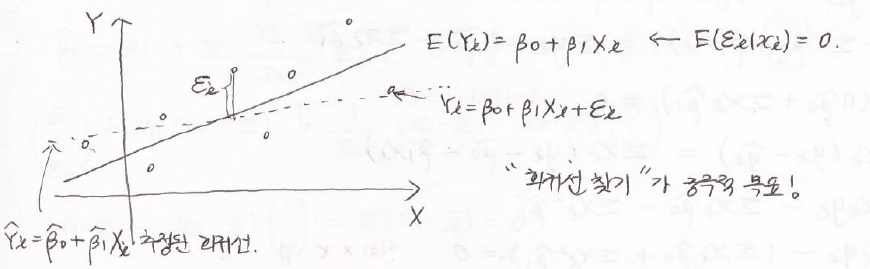 Y
E(Yᵢ) = β₀ + β₁Xᵢ ← E(εᵢ|xᵢ) = 0.
εᵢ
← Yᵢ = β₀ + β₁Xᵢ + εᵢ
"회귀선 찾기"가 궁극적 목표!
X
Ŷᵢ = β̂₀ + β̂₁Xᵢ 추정된 회귀선.